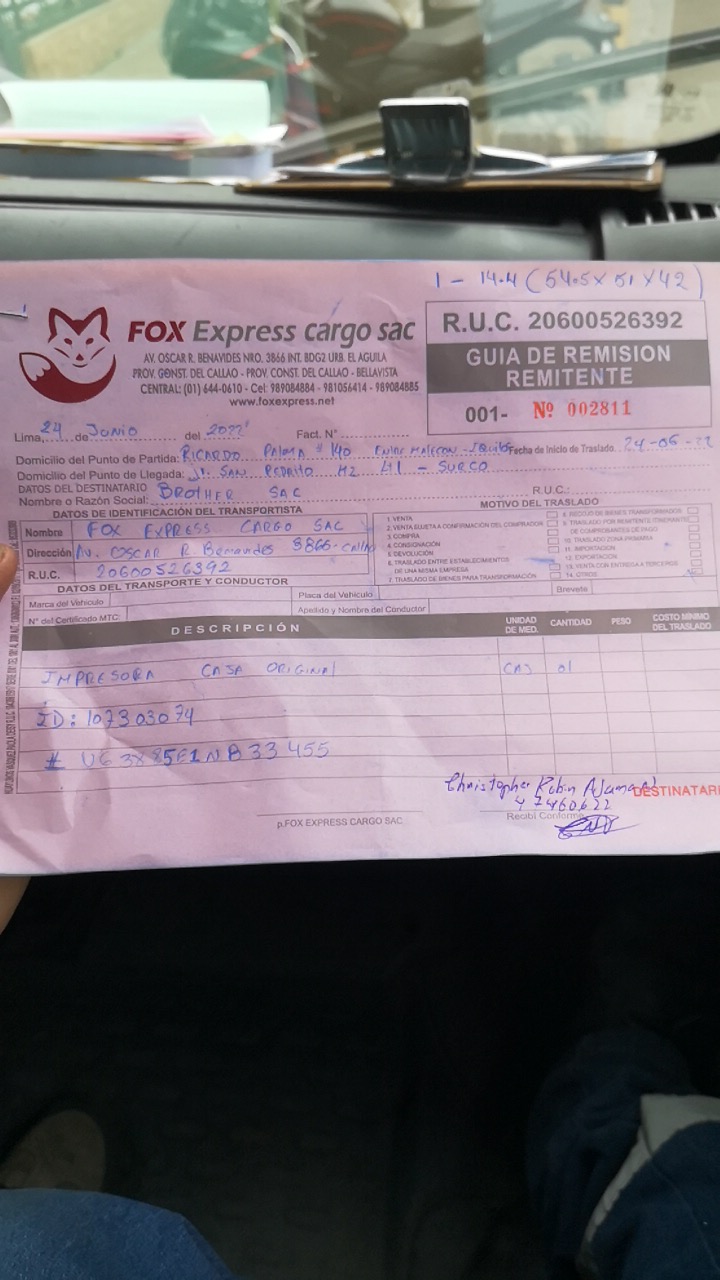 1 - 14.4 (54.5 x 51 x 42)
FOX Express cargo sac
AV. OSCAR R. BENAVIDES NRO. 3866 INT. BDG2 URB. EL AGUILA
PROV. CONST. DEL CALLAO - PROV. CONST. DEL CALLAO - BELLAVISTA
CENTRAL: (01) 644-0610 - Cel: 989084884 - 981056414 - 989084885
www.foxexpress.net
R.U.C. 20600526392
GUIA DE REMISION
REMITENTE
001- Nº 002811
Lima, 24 de Junio del 2022 Fact. N°
Domicilio del Punto de Partida: RICARDO PALMA # 140 Fecha de Inicio de Traslado. 24-06-22
Domicilio del Punto de Llegada: Jr. SAN PEDRITO MZ - SURCO
DATOS DEL DESTINATARIO
Nombre o Razón Social: BROTHER SAC R.U.C.:
DATOS DE IDENTIFICACIÓN DEL TRANSPORTISTA
Nombre FOX EXPRESS CARGO SAC
Dirección Av. OSCAR R. Benavides 3866-Callao
R.U.C. 20600526392
MOTIVO DEL TRASLADO
1. VENTA
2. VENTA SUJETA A CONFIRMACIÓN DEL COMPRADOR
3. COMPRA
4. CONSIGNACIÓN
5. DEVOLUCIÓN
6. TRASLADO ENTRE ESTABLECIMIENTOS
DE UNA MISMA EMPRESA
7. TRASLADO DE BIENES PARA TRANSFORMACIÓN
8. RECOJO DE BIENES TRANSFORMADOS
9. TRASLADO POR EMISOR ITINERANTE
DE COMPROBANTES DE PAGO
10. TRASLADO ZONA PRIMARIA
11. IMPORTACIÓN
12. EXPORTACIÓN
13. VENTA CON ENTREGA A TERCEROS
14. OTROS
DATOS DEL TRANSPORTE Y CONDUCTOR
Marca del Vehículo Placa del Vehículo Brevete
N° del Certificado MTC: Apellido y Nombre del Conductor
DESCRIPCIÓN UNIDAD DE MED. CANTIDAD PESO COSTO MÍNIMO DEL TRASLADO
IMPRESORA CAJA ORIGINAL CAJ 01
ID: 107303074
# U63885E1NB33455
Christopher Robin
47460622
DESTINATARI
p.FOX EXPRESS CARGO SAC
Recibí Conforme